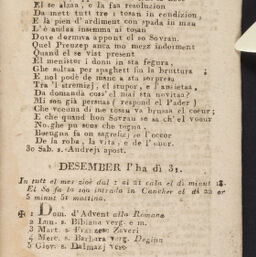 El se alzaa, e la faa resoluzion
Da mett tutt tre i tosan in condizion,
E là pien d'ardiment con spada in man
L'è andaa insemma ai tosan
Dove dormiva appont el so Sovran.
Quel Prenzep anca mo mezz indorment
Quand el se vist present
El menister in donn in sta fegura,
Ghe soltaa per spaghett fin la bruttura ;
E nol podè de manc a sta sorpresa
Tra l'stremizi, el stupor, e l'ansietaa,
Da domandà cosa l'era sta novitaa?
Mi son già persuas ( respond el Pader )
Che vœuna di me tosan va brusaa el cœur;
E che quand hon Sovran se sa ch'el vœur
No ghe pu sœus che tegna.
Bœugna fa on sagrelizi e l'occor
De la roba, la vita, e de l'onor.
30 Sab. s. Andreji apost.
DESEMBER l'ha dì 31.
In tutt el mes zioè dal 2 ai 21 cala el dì minut 18.
El So fa la soa intrada in Cancher al dì 22 or
5 minut 51 mattina.
✠ 1 Dom. d'Advent alla Romana
2 Lun. s. Bibiana verg. e m.
3 Mart. s. Franzesc Zaveri
4 Merc. s. Barbara verg. Degiun
5 Giov. s. Dalmazi Vesc.